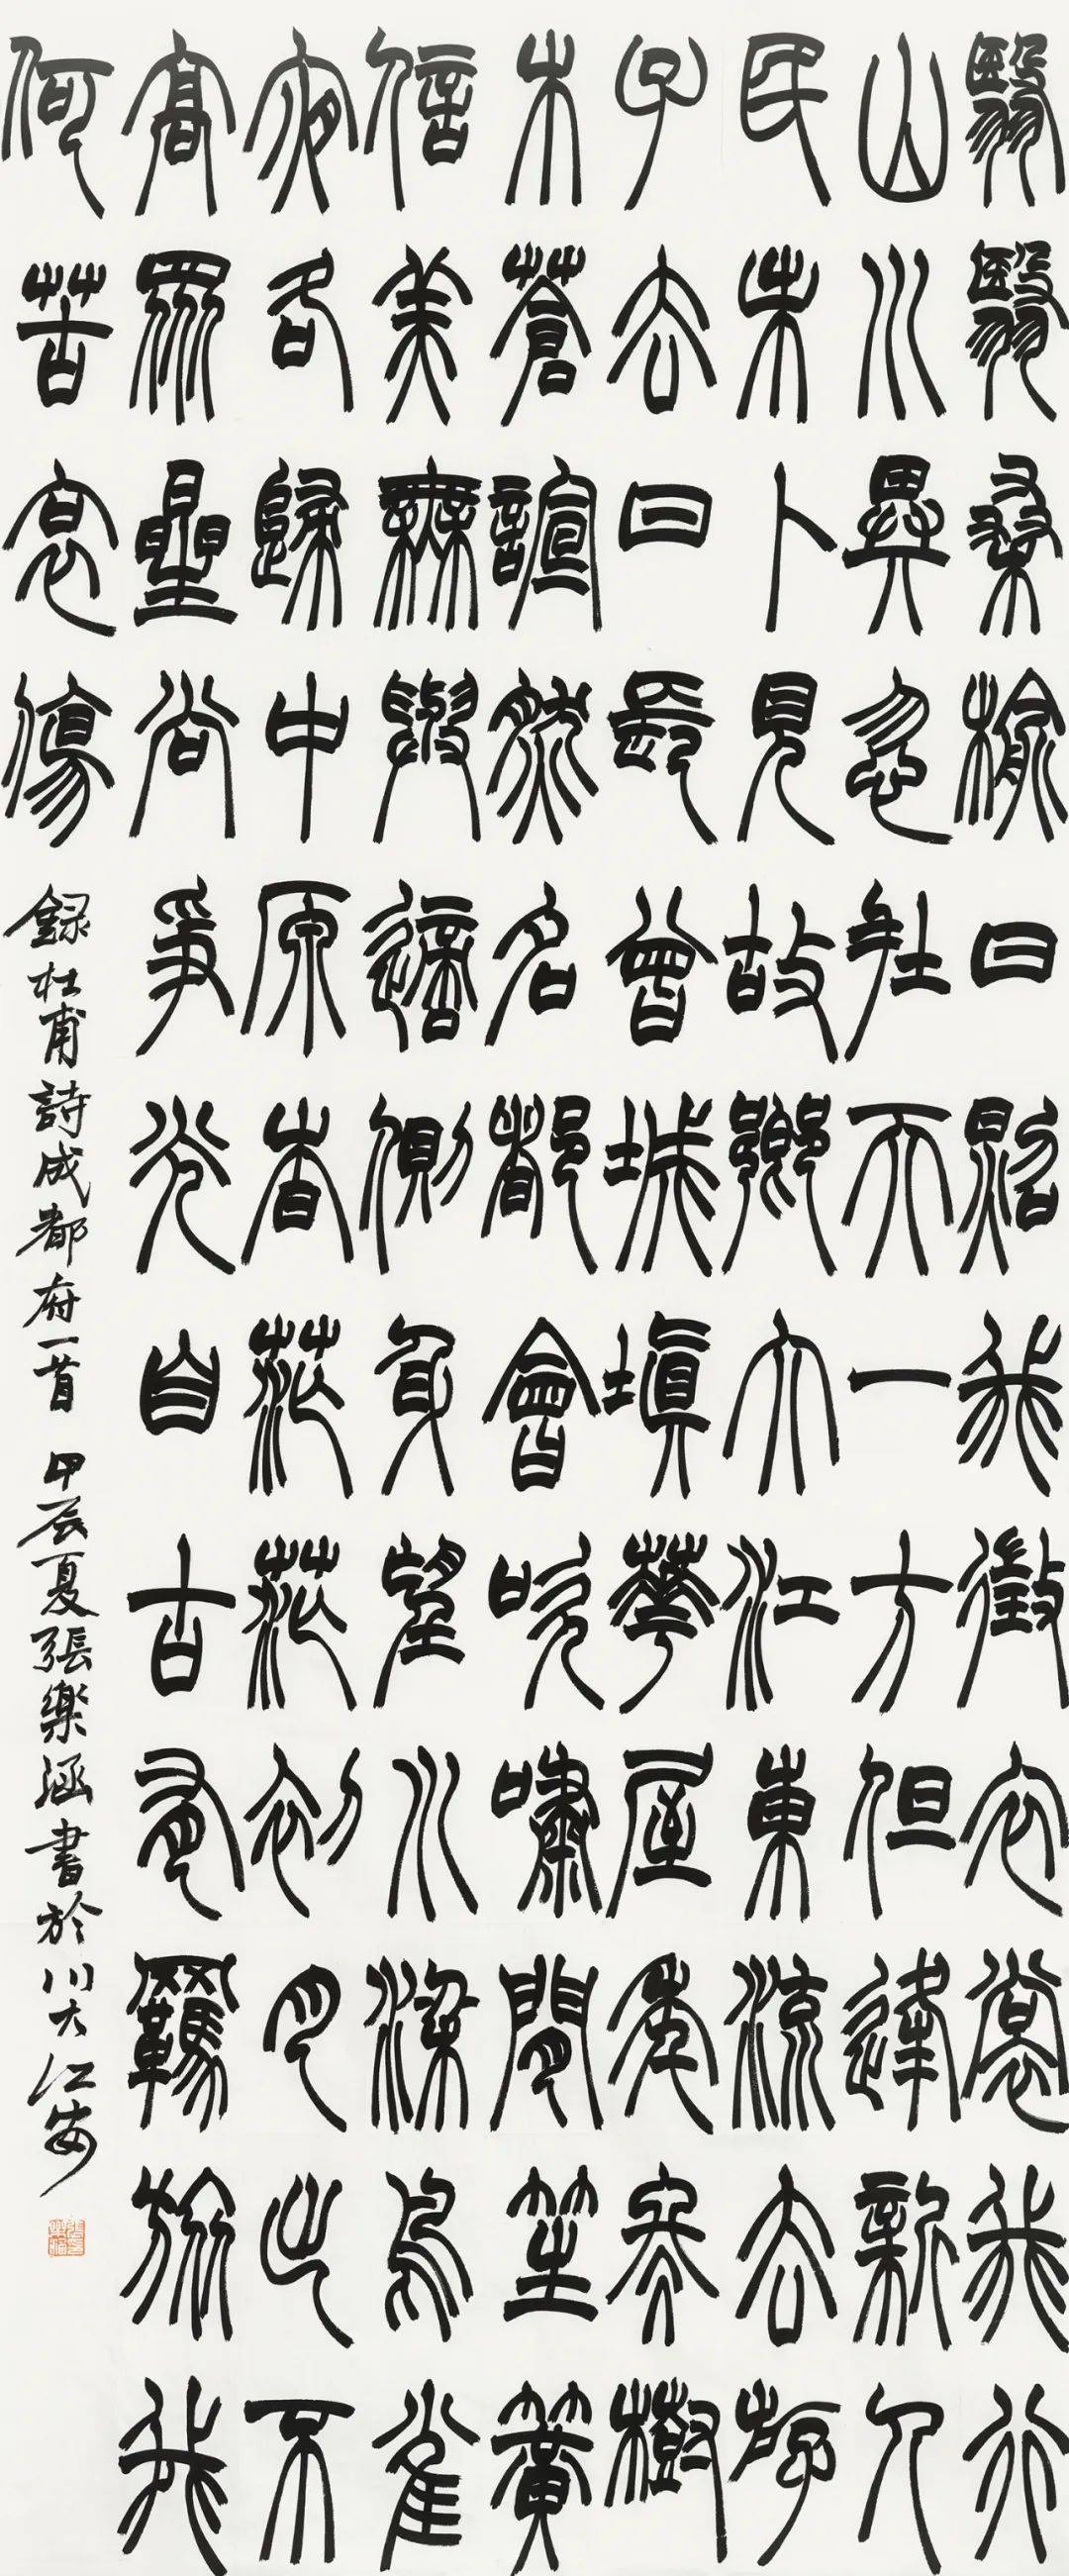 翳翳桑榆日照我徵衣裳我行
山川異忽在天一方但逢新人
民未卜見故鄉大江東流去斿
子去日長曾城填華屋季冬樹
木蒼諠然名都會吹嘯間笙簧
信美無與適側身望川梁鳥雀
夜各歸中原杳茫茫初月出不
高眾星尚爭光自古有羈旅我
何苦哀傷 録杜甫詩成都府一首 甲辰夏張樂涵書於川大江安